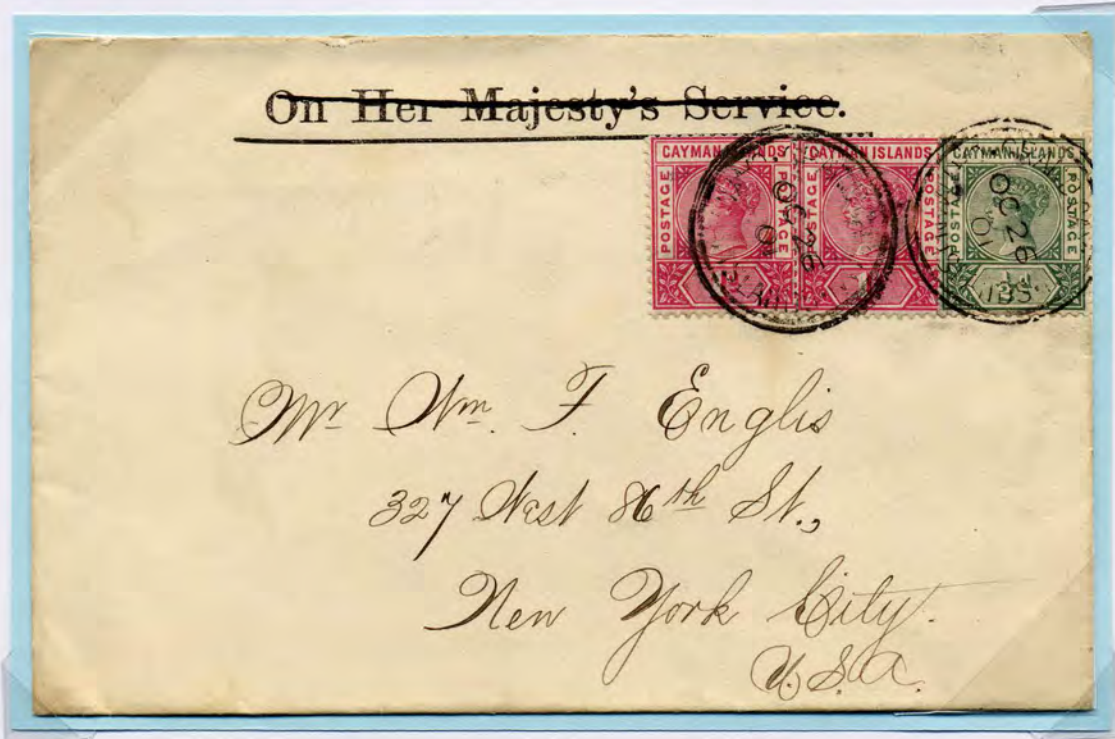 On Her Majesty's Service.
CAYMAN ISLANDS CAYMAN ISLANDS CAYMAN ISLANDS
POSTAGE POSTAGE POSTAGE POSTAGE POSTAGE POSTAGE
OC 26
01
OC 26
01
Mr Wm. F. Englis
327 West 86th St.,
New York City.
U.S.A.